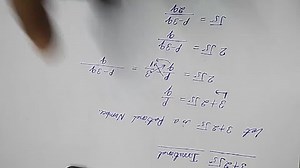 3+2√5 Irrational
Let 3+2√5 is a Rational Number
3+2√5 = p/q
2√5 = p/q - 3/1 = (p-3q)/q
2√5 = (p-3q)/q
√5 = (p-3q)/2q